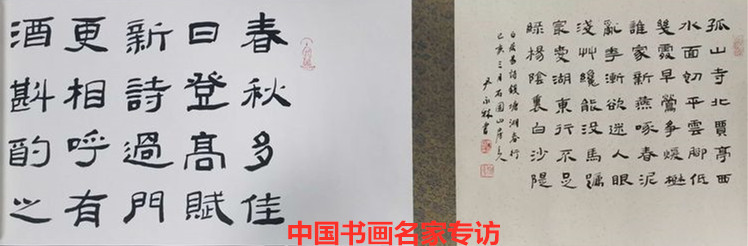 春秋多佳
日登高賦
新詩過門
更相呼有
酒斟酌之
孤山寺北賈亭西
水面初平雲腳低
幾處早鶯爭暖樹
誰家新燕啄春泥
亂季漸欲迷人眼
淺艸纔能没馬蹄
冣愛湖東行不足
綠楊陰裏白沙隄
白居易詩錢塘湖春行
己亥三月石固山房
中国书画名家专访